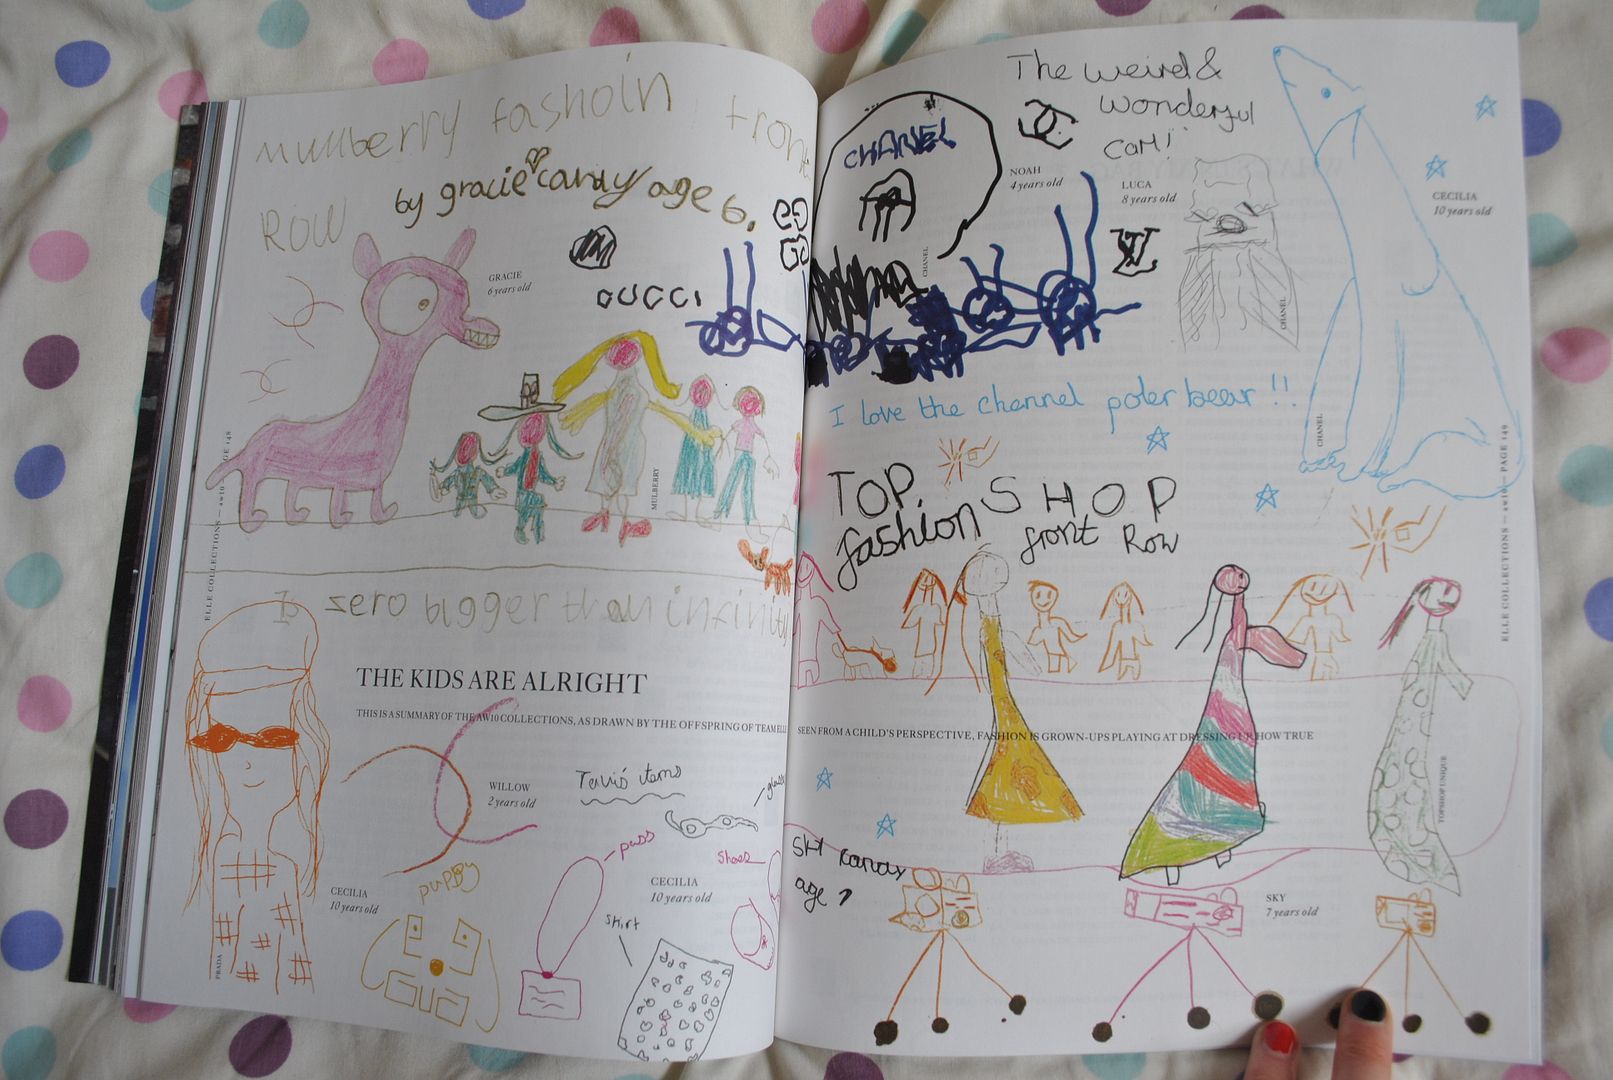 mullberry fashoin front
ROW
by gracie candy age 6.
GRACIE
6 years old
GUCCI
MULBERRY
ELLE COLLECTIONS — aw10 — PAGE 148
Is zero bigger than infinity
THE KIDS ARE ALRIGHT
THIS IS A SUMMARY OF THE AW10 COLLECTIONS, AS DRAWN BY THE OFFSPRING OF TEAM ELLE
WILLOW
2 years old
items
glasses
pass
shoes
CECILIA
10 years old
puppy
CECILIA
10 years old
skirt
PRADA
The weird &
wonderful
CHANEL
NOAH
4 years old
LUCA
8 years old
CECILIA
10 years old
CHANEL
CHANEL
CHANEL
I love the channel poler bear!!
TOP SHOP
fashion front Row
ELLE COLLECTIONS — aw10 — PAGE 149
SEEN FROM A CHILD'S PERSPECTIVE, FASHION IS GROWN-UPS PLAYING AT DRESSING UP. HOW TRUE
TOPSHOP UNIQUE
age 7
SKY
7 years old